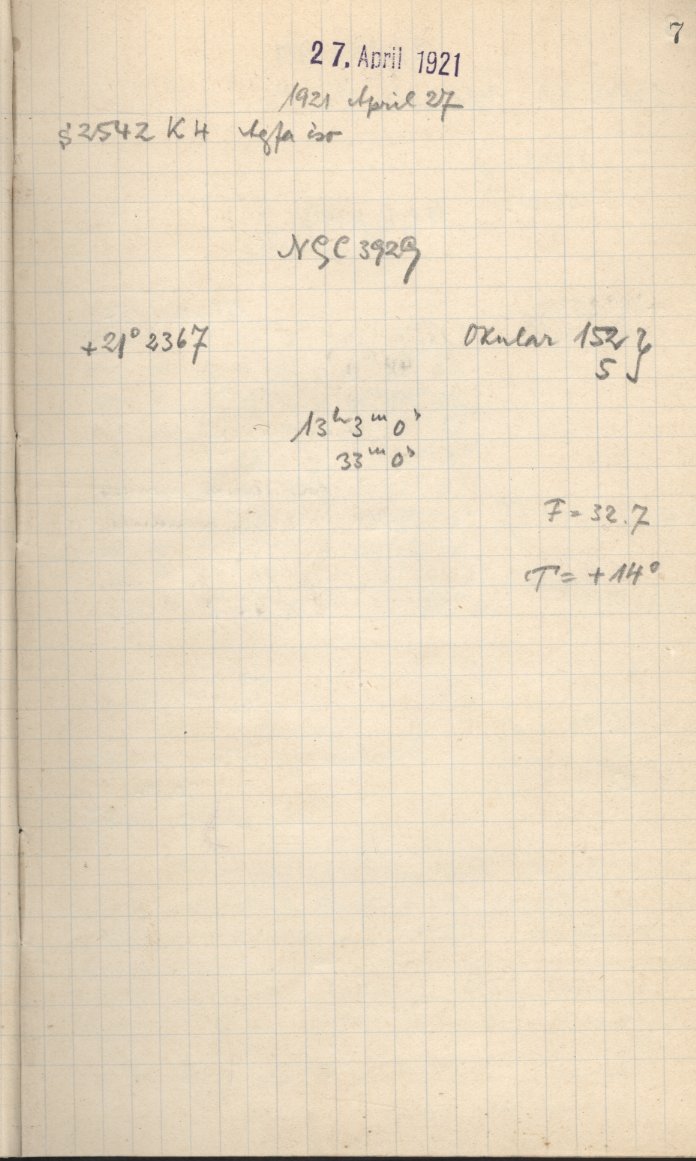 7
27. April 1921
1921 April 27
S 2542 K H Agfa iso
NGC 3929
+21° 2367
Okular 152
5
13ʰ 3ᵐ 0ˢ
33ᵐ 0ˢ
F = 32.7
T = +14°